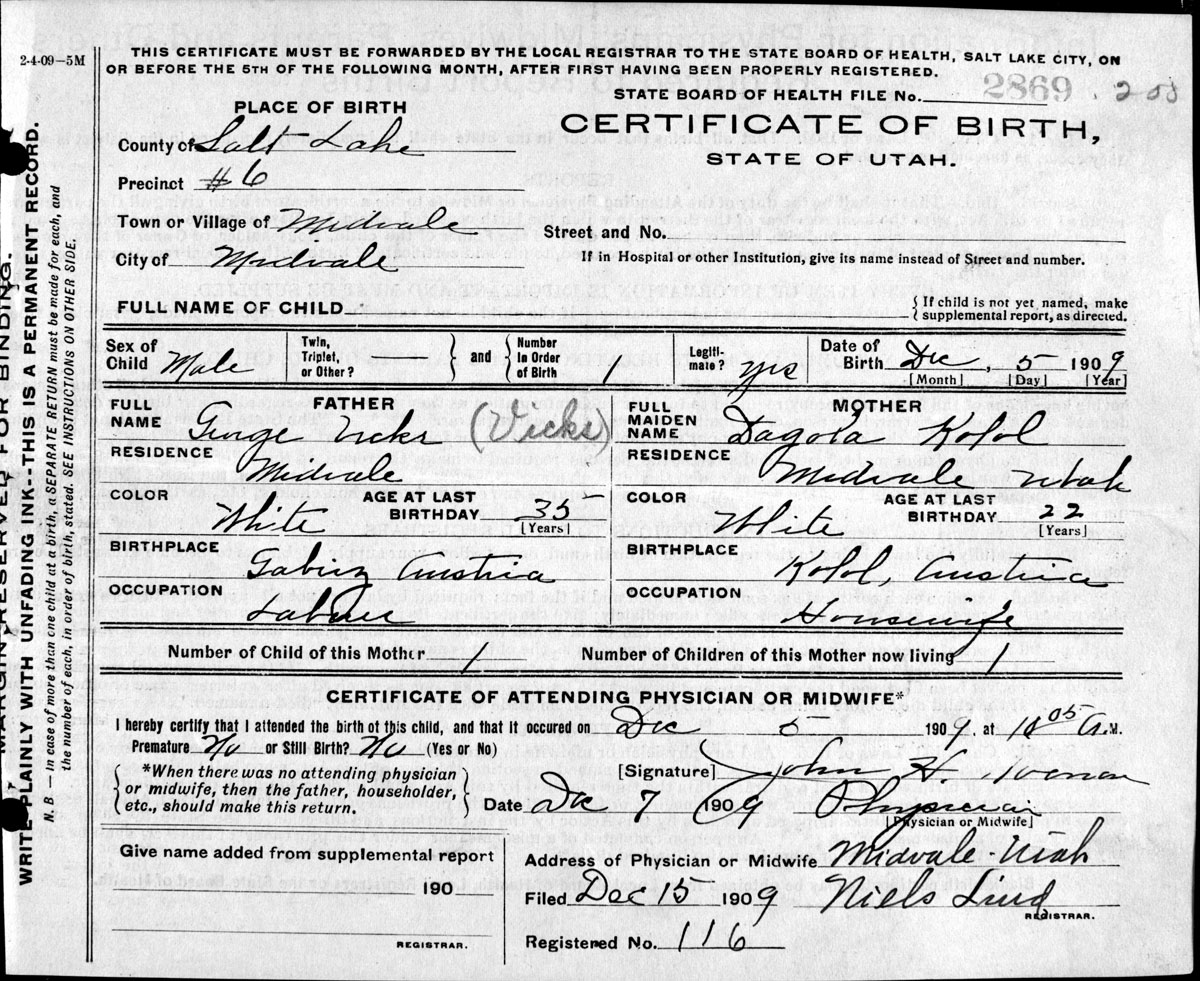 2-4-09—5M
THIS CERTIFICATE MUST BE FORWARDED BY THE LOCAL REGISTRAR TO THE STATE BOARD OF HEALTH, SALT LAKE CITY, ON
OR BEFORE THE 5TH OF THE FOLLOWING MONTH, AFTER FIRST HAVING BEEN PROPERLY REGISTERED.
STATE BOARD OF HEALTH FILE No. 2869
CERTIFICATE OF BIRTH,
STATE OF UTAH.
PLACE OF BIRTH
County of Salt Lake
Precinct #6
Town or Village of Midvale
City of Midvale
Street and No.
If in Hospital or other Institution, give its name instead of Street and number.
FULL NAME OF CHILD
{ If child is not yet named, make
supplemental report, as directed.
Sex of Child Male
Twin, Triplet, or Other?
and
Number in Order of Birth 1
Legitimate? yes
Date of Birth Dec, 5 1909
[Month] [Day] [Year]
FATHER
FULL NAME George (Vicks)
RESIDENCE Midvale
COLOR White
AGE AT LAST BIRTHDAY 35
[Years]
BIRTHPLACE Austria
OCCUPATION Laborer
MOTHER
FULL MAIDEN NAME Kofol
RESIDENCE Midvale Utah
COLOR White
AGE AT LAST BIRTHDAY 22
[Years]
BIRTHPLACE Kofol, Austria
OCCUPATION Housewife
Number of Child of this Mother 1
Number of Children of this Mother now living 1
CERTIFICATE OF ATTENDING PHYSICIAN OR MIDWIFE*
I hereby certify that I attended the birth of this child, and that it occured on Dec 5 1909, at A.M.
Premature No or Still Birth? No (Yes or No)
{ *When there was no attending physician
or midwife, then the father, householder,
etc., should make this return. }
[Signature] John H.
Date Dec 7 1909 Physician
[Physician or Midwife]
Give name added from supplemental report
190
REGISTRAR.
Address of Physician or Midwife Midvale Utah
Filed Dec 15 1909 Niels Lind
REGISTRAR.
Registered No. 116
MARGIN RESERVED FOR BINDING.
WRITE PLAINLY WITH UNFADING INK--THIS IS A PERMANENT RECORD.
N. B.—In case of more than one child at a birth, a SEPARATE RETURN must be made for each, and
the number of each, in order of birth, stated. SEE INSTRUCTIONS ON OTHER SIDE.